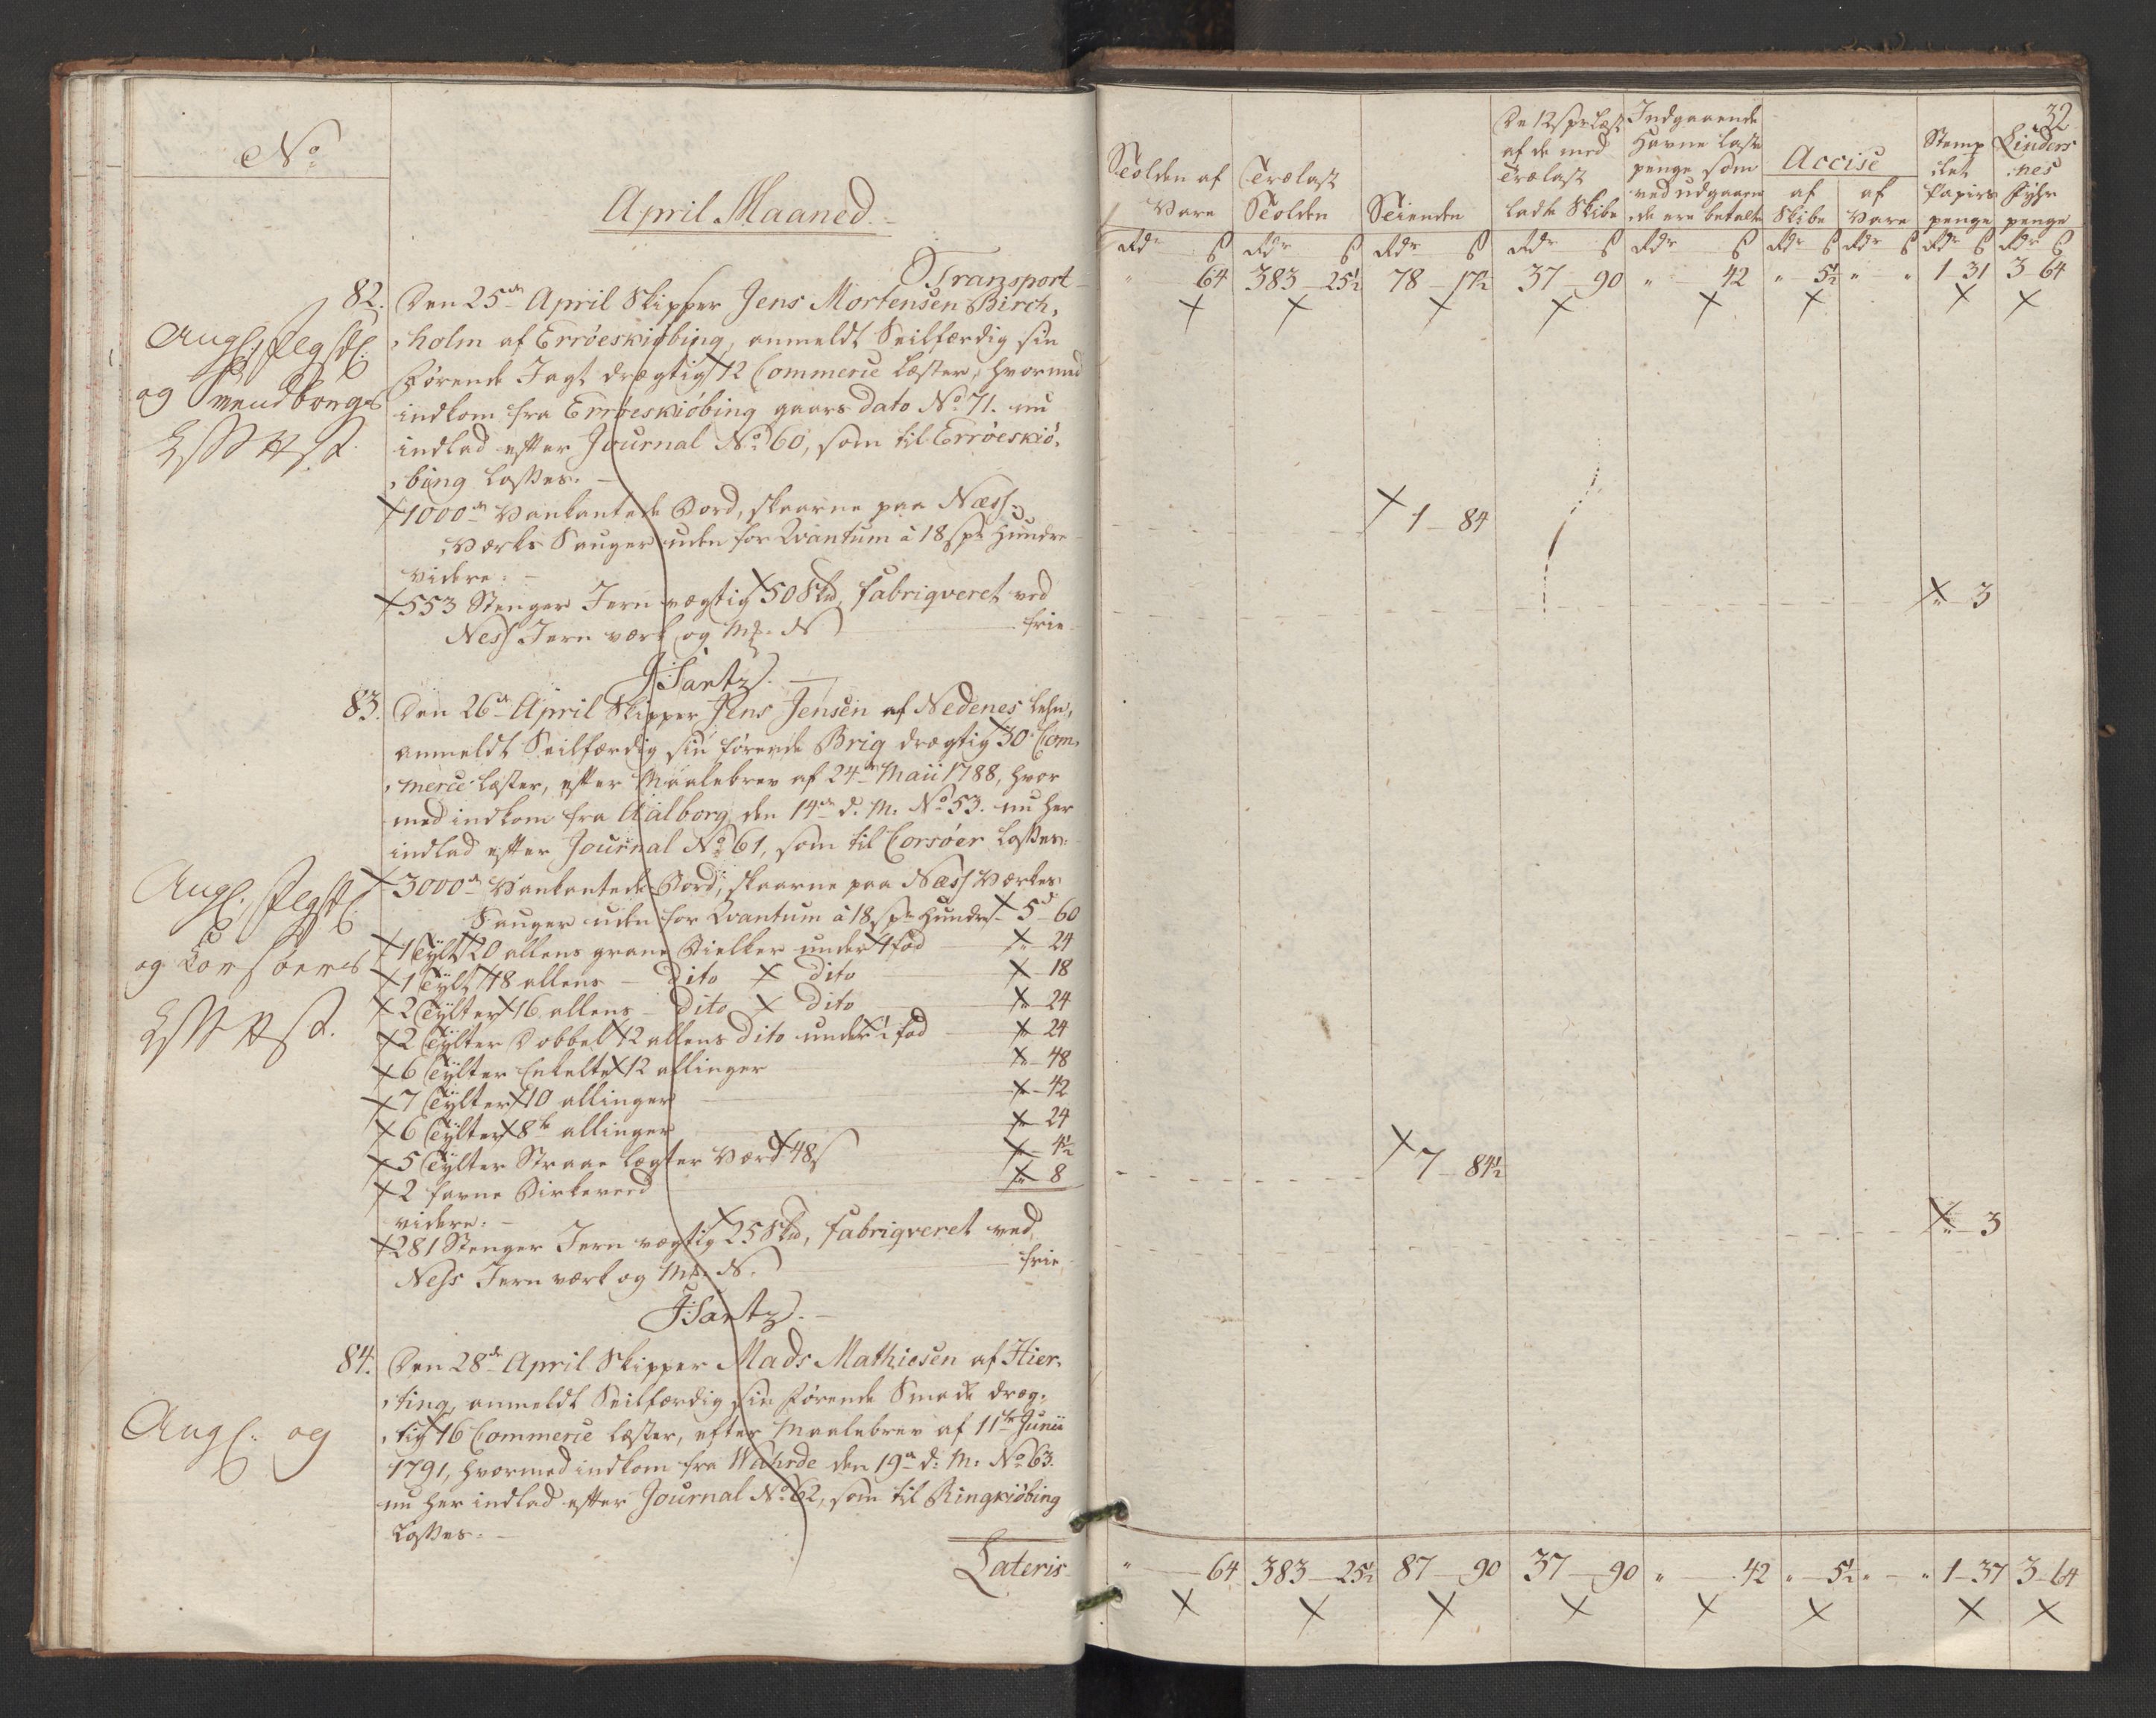 No
April Maaned.
Transport
82. Den 25de April Skipper Jens Mortensen Birch,
holm af Erröeskiøbing, anmeldt Seilfærdig sin
førende Jagt drægtig 12 Commerce Læster, hvormed
indkom fra Erröeskiöbing gaars dato No 71. nu
indlad efter Journal No 60, som til Erröeskiö,
bing losses.
og Svendborgs
1000de Vankantede Bord, skaarne paa Næss
Værks Sauger uden for Qvantum à 18 sk Hundre
videre:
553 Stenger Jern vægtig 50 Skd, fabriqveret ved
Ness Jern værk og Mk. N frie
83. Den 26de April Skipper Jens Jensen af Nedenes Lehn,
anmeldt Seilfærdig sin førende Brig drægtig 30 Com,
merce Læster, efter Maalebrev af 24de Maii 1788, hvor
med indkom fra Aalborg den 14de d. M. No 53. nu her
indlad efter Journal No 61, som til Corsöer losses.
3000de Vankantede Bord, skaarne paa Næss Værkes
Sauger uden for Qvantum à 18 sk Hundre 5 - 60
1 Tylt 20 allens grane Bielker under 1 fod " 24
og Corsöers
1 Tylt 18 allens - dito dito " 18
2 Tylter 16 allens - dito dito " 24
2 Tylter Dobbelt 12 allens dito under 1 fod " 24
6 Tylter Enkelte 12 allinger " 48
7 Tylter 10 allinger " 42
6 Tylter 8te allinger " 24
5 Tylter Straae Lægter værd 48 s " 4½
2 favne Birkeved " 8
videre:
281 Stenger Jern vægtig 25 Skd, fabriqveret ved
Ness Jern værk og Mk. N. frie
84. Den 28de April Skipper Mads Mathiesen af Hier,
ting, anmeldt Seilfærdig sin førende Smake dræg,
tig 16 Commerce Læster, efter Maalebrev af 11te Junii
1791, hvormed indkom fra Wahrde den 19de d. M. No 63.
nu her indlad efter Journal No 62, som til Ringkiöbing
losses.
Lateris
32
Tolden af Vare
Trælast Tolden
Tienden
De 12 sk pr Læst af de med Trælast ladte Skibe
Indgaaende Havne Laste penge som ved udgaaende ere betalte
Accise
af Skibe
af Vare
Stemplet Papirs penge
Linders nes Fyhr penge
Rdr s Rdr s Rdr s Rdr s Rdr s Rdr s Rdr s Rdr s Rdr s
" 64 383 - 25½ 78 - 17½ 37 - 90 " - 42 " - 5½ " " 1 - 31 3 64
1 - 84
" 3
7 - 84½
" 3
" 64 383 - 25½ 87 - 90 37 - 90 " - 42 " - 5½ " - " 1 - 37 3 - 64